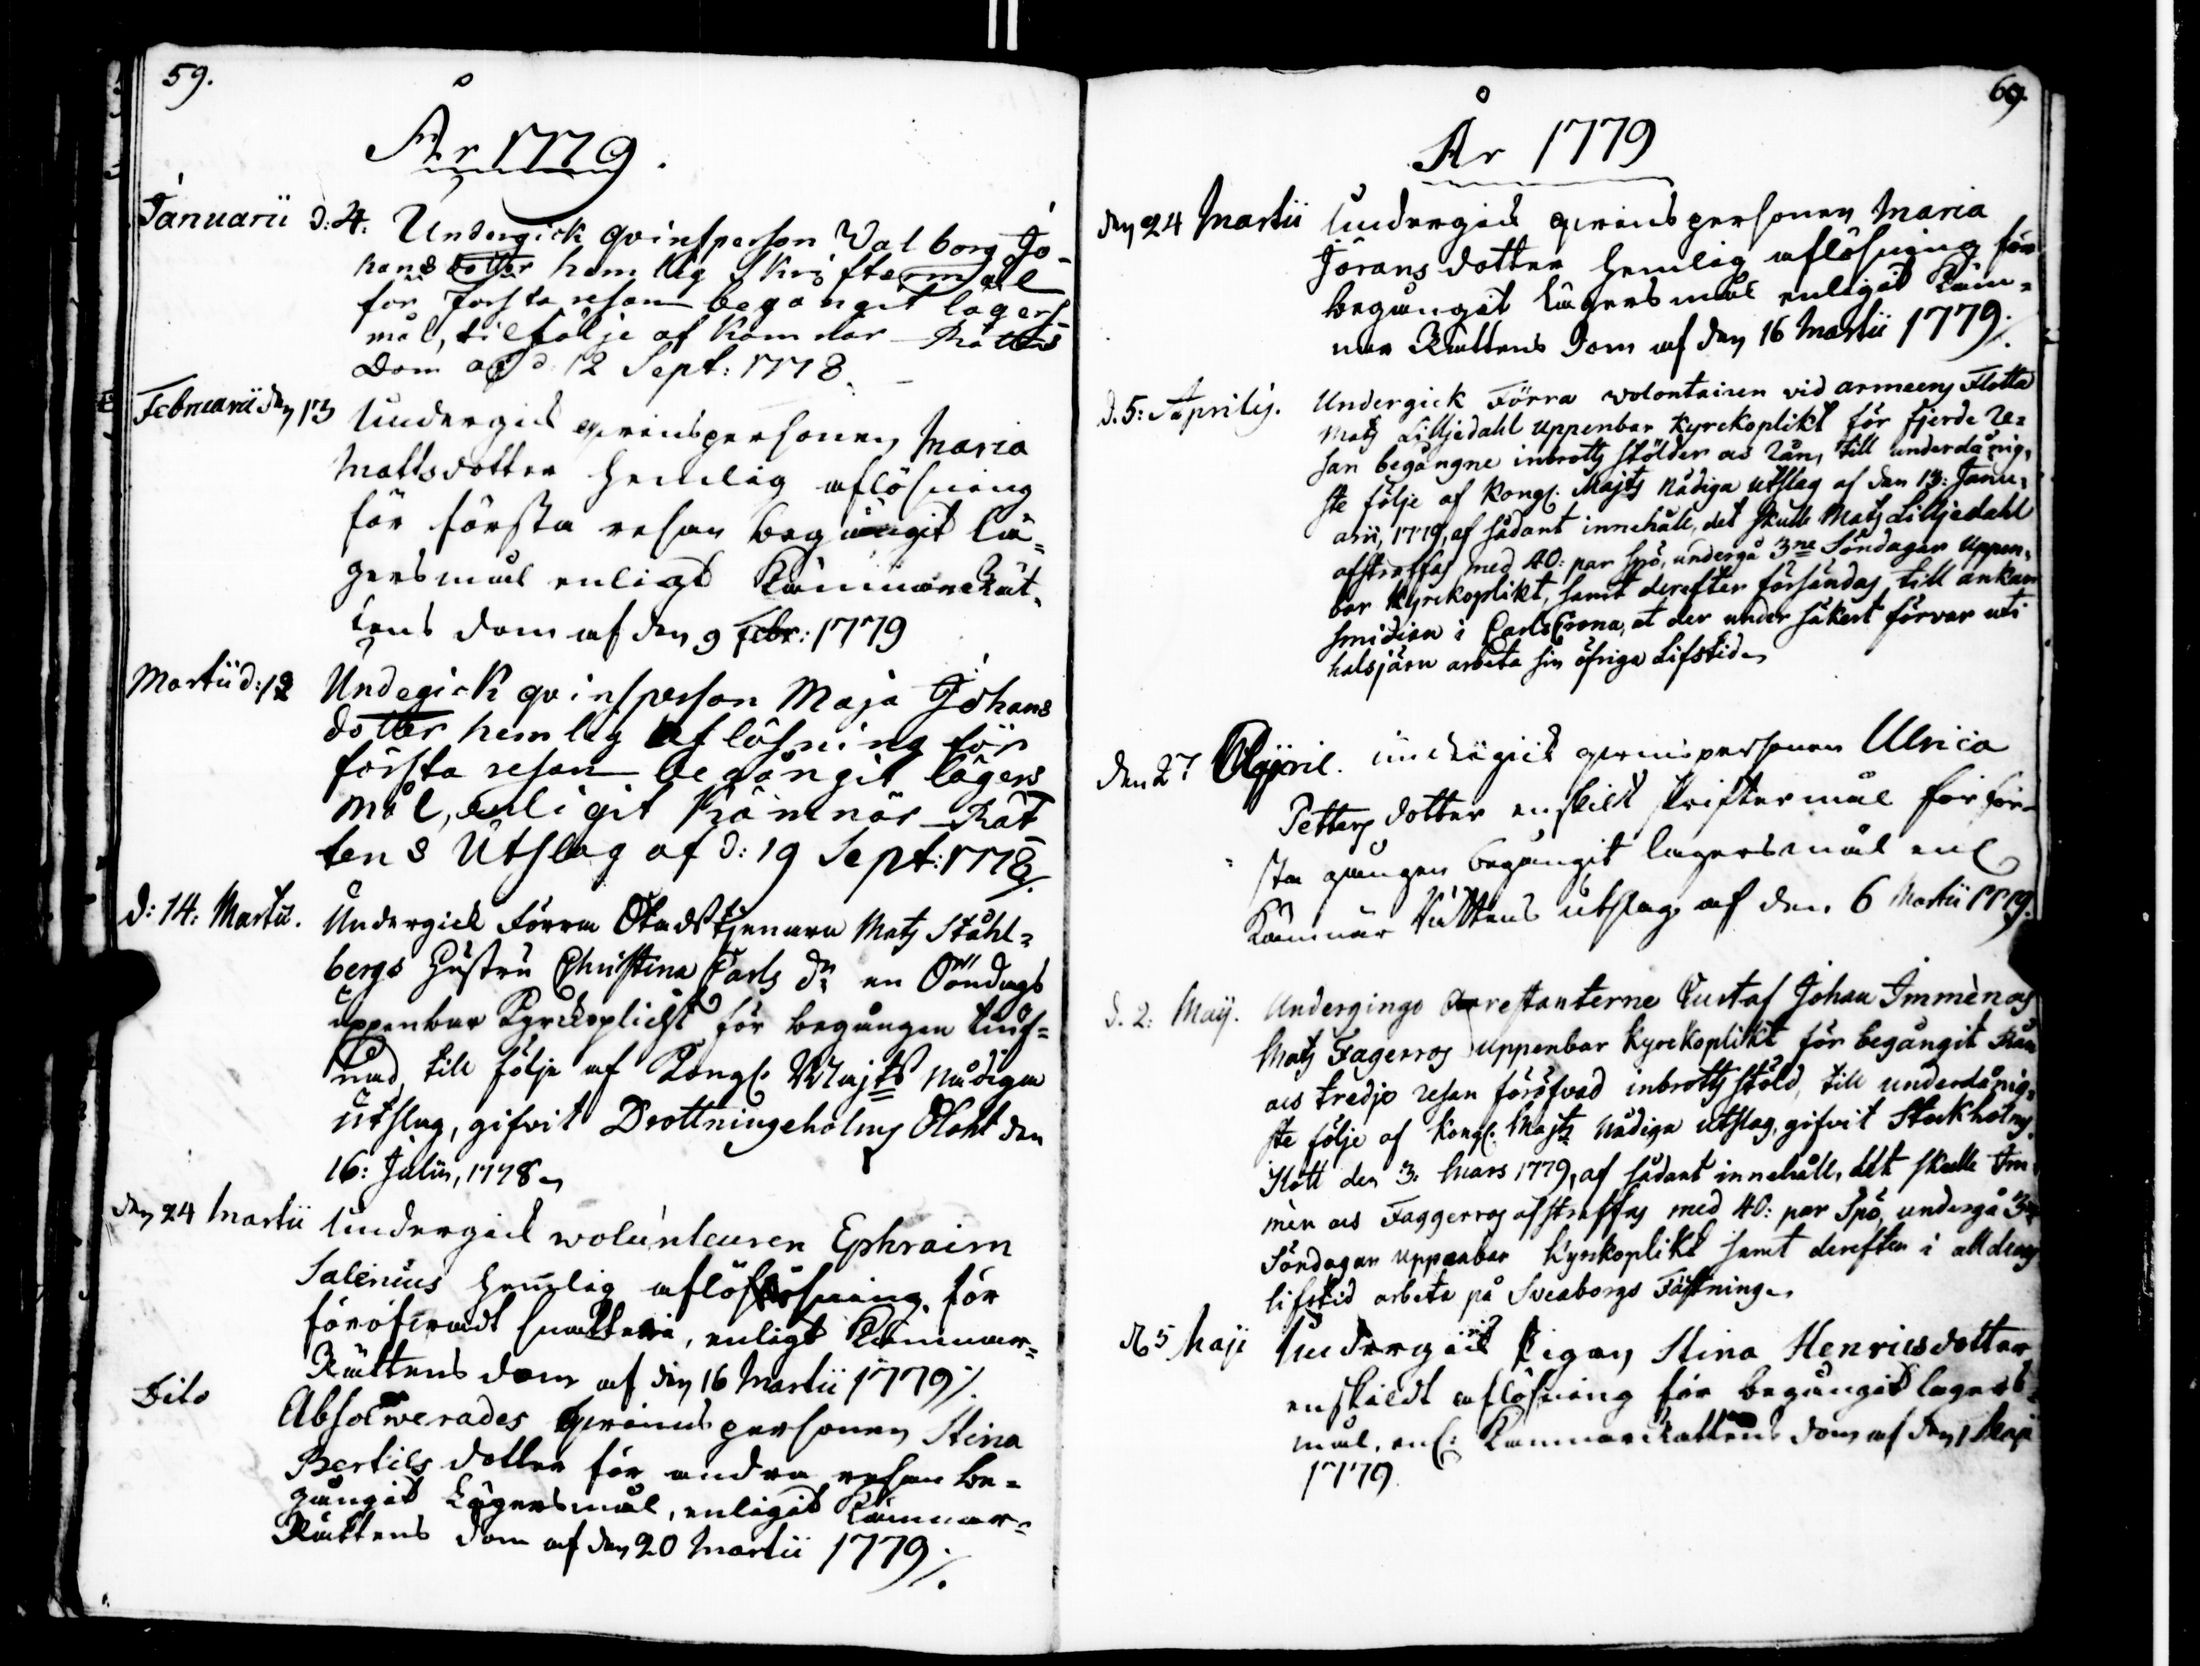 59.
År 1779.
Januarii d: 4. Undergick qvinsperson Valborg Jo-
hans dotter hemlig Skriftermål
for forsta resan begångit lägers-
mål, til följe af Kämnär-Rättens
Dom af d. 12 Sept: 1778.
Februarii den 13 Undergick qvinspersonen Maria
Mattsdotter hemlig aflösning
för första resan begångit lä-
gersmål enligt Kämnärs Rät-
tens dom af den 9 Febr: 1779
Martii d: 12 Undegick qvinsperson Maja Johans
dotter hemlig aflösning för
första resan begångit lägers
mål, enligit Kämnär-Rät
tens Utslag af d: 19 Sept: 1778/.
d: 14: Martii. Undergick Förra Stadstjenaren Matz Ståhl-
bergs Hustru Christina Carls dr en Söndags
uppenbar Kyrckoplickt för begången tiuf-
nad, till följe af Kongl: Majts Nådiga
utslag, gifvit Drottningeholms Slott den
16: Julii, 1778.
den 24 Martii Undergick wolunteuren Ephraim
Salenius hemlig aflösning för
föröfwadt snatteri, enligt Kämnar-
Rättens dom af den 16 Martii 1779/.
Dito Absolwerades qvinnspersonen Stina
Bertils dotter för andra resan be-
gångit Lägersmål, enligit Kämnar-
Rättens dom af den 20 Martii 1779/.
60.
År 1779
den 24 Martii Undergick qvinspersonen Maria
Jörans dotter hemlig aflösning för
begångit Lägersmål enligit Käm-
ner Rättens Dom af den 16 Martii 1779/.
d. 5: Aprilis. Undergick Förra wolontairen vid armeens Flotta
Matz Lilljedahl uppenbar Kyrckoplikt för fjerde re-
san begångne inbrotts stölder och Rån, till underdånig-
ste följe af Kongl: Majts Nådiga utslag af den 13: Janu-
arii, 1779, af sådant innehåll, det skulle Matz Lilljedahl
afstraffas med 40: par Spö, undergå 3ne Söndagar uppen-
bar Kyrckoplikt, samt derefter försändas till ankar
smidien i CarlsCrona, at der under säkert förvar uti
halsjärn arbeta sin öfriga Lifstid.
den 27 April. undergick qvinspersonen Ulrica
Petters dotter enskilt skriftermål för för-
sta gången begångit lägersmål enl
Kämnär Rättens utslag af den 6 Martii 1779.
d. 2: Maij. Undergingo arrestanterne Gustaf Johan Immèn och
Matz Fagerros uppenbar Kyrckoplikt för begångit Rån
och tredje resan föröfvad inbrotts stöld, till underdånig-
ste följe af Kongl: Majts Nådiga utslag, gifvit Stockholms
Slott den 3. Mars 1779, af sådant innehåll, det skulle Im-
mèn och Faggerros afstraffas med 40: par Spö, undergå 3ne
Söndagar uppenbar Kyrkoplikt samt derefter i all deras
lifstid arbeta på Sveaborgs Fästning.
d. 5 Maji Undergick Pigan Stina Henricsdotter
enskildt aflösning för begångit lägers-
mål, enl: Kämnars Rättens dom af den 1 Maji
1779